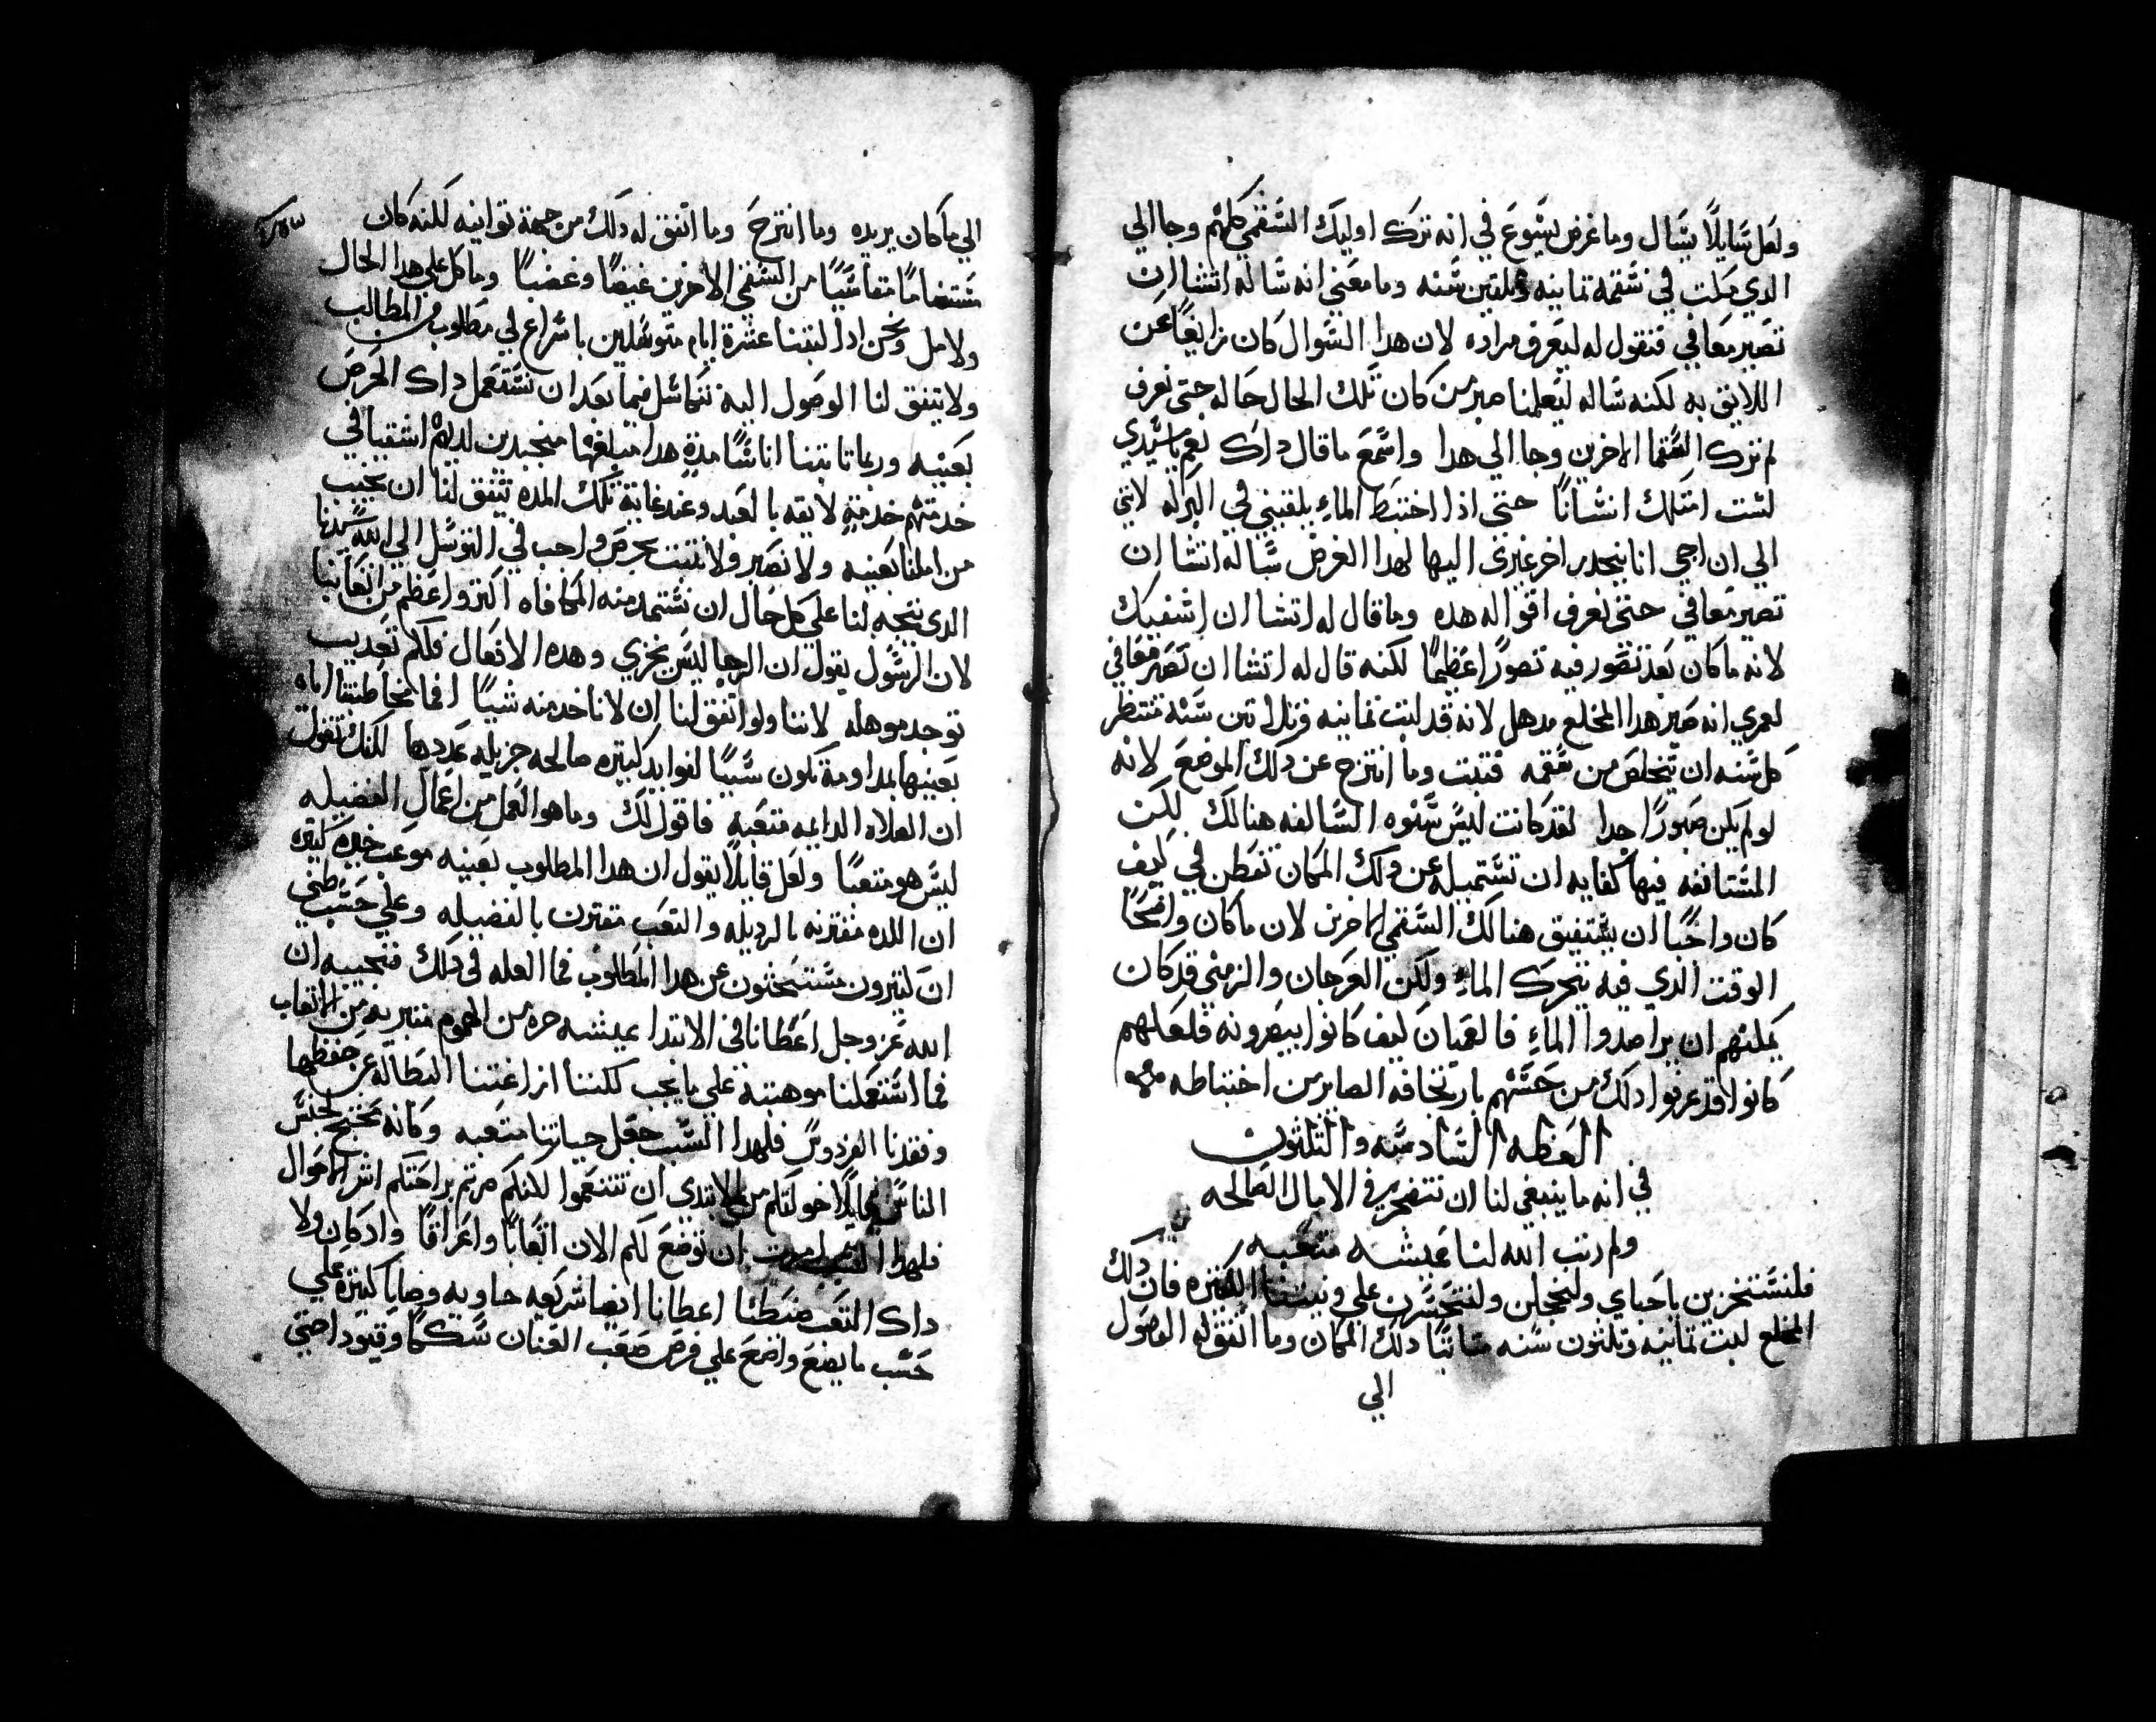 ولعل سَايلاً يسَال وما غرض يسَوع في انه ترك اوليك السَقمي كلهم وجا الي
الذي مكث في سَقمه تمانيه وتلتين سَنه وما معني انه سَاله اتشا ان
تصير معافي فنقول له ليعرف مراده لان هدا السَوال كان زايغاً عن
اللايق به لكنه سَاله ليعلمنا صبر من كان تلك الحال حاله حتي نعرف
لم ترك السَقما الاخرين وجا الي هدا واسَمع ما قال داك نعم يا سَيدي
لسَت امتلك انسَاناً حتي اذا اختبط الماءِ يلقيني في البركه لانني
الي ان اجي انا ينحدر اخر غيري اليها لهدا الغرض سَاله اتشا ان
تصير معافي حتي نعرف اقواله هده وما قال له اتشا ان اشفيك
لانه ما كان بعد تصور فيه تصوراً عظيماً لكنه قال له اتشا ان تصير معافي
لعمري انه صبر هدا المخلع مدهل لانه قد لبت تمانيه وتلاتين سَنه منتظر
كل سَنه ان يتخلص من سَقمه فتبت وما انتزح عن دلك الموضع لانه
لو لم يكن صبوراً جدا لقد كانت ليسَ سَنوه السَالفه هنالك لكن
المسَتانفه فيها كفايه ان تسَتميله عن دلك المكان تفطن لي كيف
كان واجباً ان يسَتفيق هنالك السَقمي الاخرين لان ما كان واضحاً
الوقت الدي فيه يتحرك الماءِ ولكن العرجان والزمني قد كان
يمكنهم ان يراصدوا الماءِ فالعميان كيف كانوا يبصرونه فلعلهم
كانوا قد عرفوا دلك من حسَهم بارتخافه الصاير من اختباطه
العظه السَادسَه والتلتون
في انه ما ينبغي لنا ان نتضجر في الامال الصالحه
ولم رتب الله لنا عيشه متعبه
فلنسَتخزين يا احباي ولنخجلن ولنتحسَرن علي ونيتنا الكتيره فان دلك
المخلع لبت تمانيه وتلتون سَنه متابتاً دلك المكان وما اتفق له الوصول
الي
الي ما كان يريده وما انتزح وما اتفق له دلك من جهة توانيه لكنه كان
مسَتضاماً متقاسَياً من السَقمي الاخرين غيضاً وغصباً وما كل علي هدا الحال
ولا مل ونحن ادا لبتنا عشرة ايام متوسَلين باسَراع لي مطلوب من المطالب
ولا يتفق لنا الوصول اليه نتكاسَل فيما بعد ان نسَتعمل داك الحرص
بعينه وربما تابتنا اناسَاً مدة هدا مبلغها منجندين لديهم اشقيا في
خدمتهم خدمةٍ لايقه بالعبد وعند غاية تلك المده يتفق لنا ان نخيب
من املنا بعينه ولا نصبر ولا نتبت بحرص واجب في التوسَل الي الله سَيدنا
الدي يتجه لنا علي كل حال ان نسَتمد منه المكافاه اكتر واعظم من اتعابنا
لان الرسَول يقول ان الرجا ليسَ يخزي وهده الافعال فلكم تعديب
توجد موهله لاننا ولو اتفق لنا ان لا ناخد منه شيياً افما مخاطبتنا اياه
بعينها بمداومة تكون سَبباً لفوايد كتيره صالحه جزيله عددها لكنك تقول
ان الصلاه الدايمه متعبه فاقول لك وما هو العمل من اعمال الفضيله
ليسَ هو متعباً ولعل قايلاً يقول ان هدا المطلوب بعينه موعب خيره كتيره
ان اللده مقترنه بالرديله والتعب مقترن بالفضيله وعلي حسَب ظني
ان كتيرون مسَتبحتون عن هدا المطلوب فما العله في دلك فنجيبه ان
الله عز وجل اعطانا في الابتدا عيشه حره من الهموم متبريه من الاتعاب
فما اسَتعملنا موهبته علي ما يجب لكننا ازاغتنا البطاله عن حفظها
وفقدنا الفردوسَ فلهدا السَبب جعل حياتنا متعبه وكانه يحتج لجنسَ
الناسَ قايلاً خولتكم من الابتدي ان تتنعموا لكنكم صرتم براحتكم اشر الاحوال
فلهدا السَبب امرت ان توضع لكم الان اتعاباً واعراقاً واد كان ولا
داك التعب ضبطنا اعطانا ايضا شريعه حاويه وصايا كتيره علي
حسَب ما يضع واضع علي فرسَ صعب العنان شكماً وقيود احتي